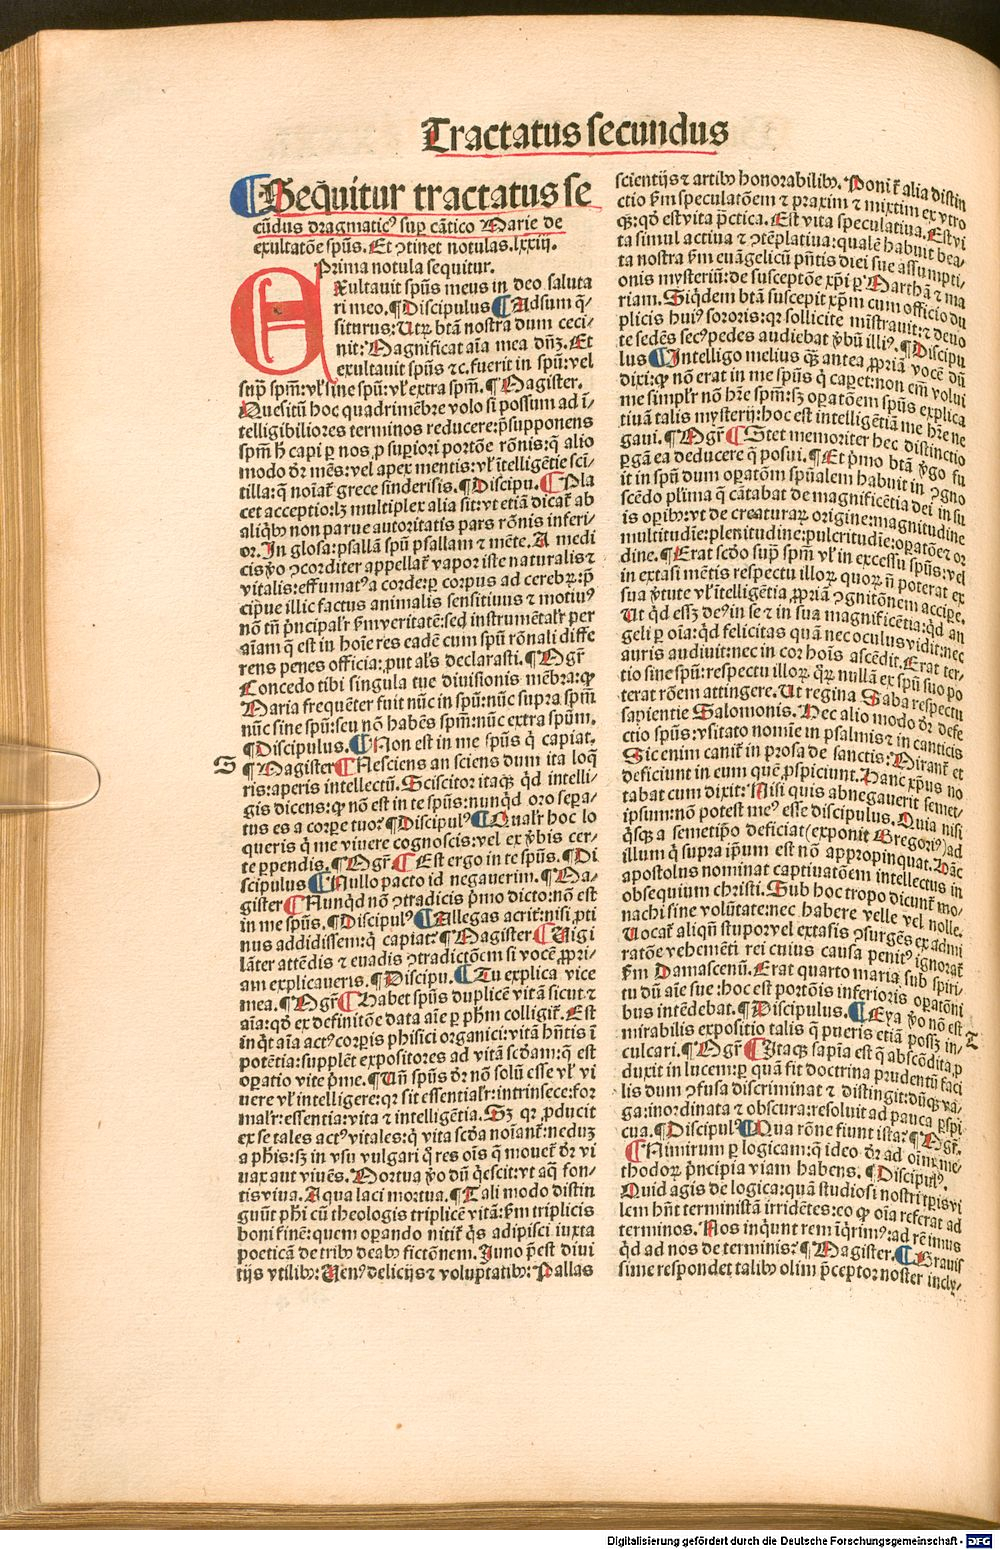 Tractatus secundus
¶Seq̄uitur tractatus se
cūdus dragmaticꝰ suꝑ cātico Marie de
exultatōe spūs. Et ꝯtinet notulas.lxxiij.
Prima notula sequitur.
EXultauit spūs meus in deo saluta
ri meo.¶Discipulus ¶Adsum q̄-
siturus:Utꝝ btā nostra dum ceci-
nit:Magnificat aīa mea dn̄ꝫ.Et
exultauit spūs ⁊c.fuerit in spū:vel
suꝑ spm̄:vl̓ sine spū:vl̓ extra spm̄.¶Magister.
Quesitū hoc quadrimēbre volo si possum ad ī-
telligibiliores terminos reducere:p̄supponens
spm̄ h̄ capi ꝑ nos ꝓ supiori portōe rōnis:q̄ alio
modo dr̄ mēs:vel apex mentis:vl̓ ītelligētie sci-
tilla:q̄ noīat̄ grece sinderisis.¶Discipu.¶Pla
cet acceptio:lꝫ multiplex alia sit:vt etiā dicat̄ ab
aliq̄bꝰ non parue autoritatis pars rōnis inferi-
or.In glosa:psallā spū psallam ⁊ mēte.A medi
cis v̓o ꝯcorditer appellat̄ vapor iste naturalis ⁊
vitalis:effumatꝰ a corde:ꝑ corpus ad cerebꝝ:p̄
cipue illic factus animalis sensitiuus ⁊ motiuꝰ
nō tn̄ p̄ncipalr̄ ẜm veritatē:sed instrumētalr̄ per
aīam q̄ est in hoīe res eadē cum spū rōnali diffe
rens penes officia:ꝓut al̓s declarasti.¶Mgr̄
Concedo tibi singula tue diuisionis mēbra:ꝙ
Maria frequēter fuit nūc in spū:nūc supra spm̄
nūc sine spū:seu nō habēs spm̄:nūc extra spūm.
¶Discipulus.¶Non est in me spūs q̄ capiat.
S ¶Magister¶Nesciens an sciens dum ita loq̄
ris:aperis intellectū.Sciscitor itaqꝫ q̄d intelli-
gis dicens:ꝙ nō est in te spūs:nunq̄d oro sepa-
tus es a corꝑe tuo?¶Discipulꝰ¶Qualr̄ hoc lo
queris q̄ me viuere cognoscis:vel ex v̓bis cer-
te ꝑpendis.¶Mgr̄¶Est ergo in te spūs.¶Di
scipulus¶Nullo pacto id negauerim.¶Ma-
gister¶Nunq̄d nō ꝯtradicis p̄mo dicto:nō est
in me spūs.¶Discipulꝰ¶Allegas acrit̓:nisi ꝓti
nus addidissem:q̄ capiat?¶Magister¶Uigi
lāter attēdis ⁊ euadis ꝯtradictōem si vocē ꝓpri-
am explicaueris.¶Discipu.¶Tu explica vice
mea.¶Mgr̄¶Habet spūs duplicē vitā sicut ⁊
aīa:qd̓ ex definitōe data aīe ꝑ phm̄ colligit̄.Est
inq̄t aīa actꝰ corꝑis phisici organici:vitā hn̄tis ī
potētia:supplēt expositores ad vitā scd̓am:q̄ est
oꝑatio vite p̄me.¶Un̄ spūs dr̄ nō solū esse vl̓ vi
uere vl̓ intelligere:qꝛ sit essentialr̄:intrinsece:for
malr̄:essentia:vita ⁊ intelligētia.Sꝫ qꝛ ꝓducit
ex se tales actꝰ vitales:q̄ vita scd̓a noīant̄:neduꝫ
a phīs:sꝫ in vsu vulgari q̄ res oīs q̄ mouet̄ dr̄ vi
uax aut viuēs.Mortua v̓o dū q̄escit:vt aq̄ fon-
tis viua.Aqua laci mortua.¶Tali modo distin
guūt phī cū theologis triplicē vitā:ẜm triplicis
boni finē:quem oꝑando nitit̄ q̄s adipisci iuxta
poeticā de tribꝰ deabꝰ fictōnem.Juno p̄est diui
tijs vtilibꝰ:Uenꝰ delicijs ⁊ voluptatibꝰ:Pallas
scientijs ⁊ artibꝰ honorabilibꝰ.Poni t̄ alia distin
ctio ẜm speculatōem ⁊ praxim ⁊ mixtim ex vtro
qꝫ:qd̓ est vita p̄ctica.Est vita speculatiua.Est vi
ta simul actiua ⁊ ꝯtēplatiua:qualē habuit bea-
ta nostra ẜm euāgelicū pn̄tis diei sue assumpti-
onis mysteriū:de susceptōe xp̄i ꝑ Marthā ⁊ ma
riam.Siq̄dem btā suscepit xp̄m cum officio du
plicis huiꝰ sororis:qꝛ sollicite mīstrauit:⁊ deuo
te sedēs secꝰ pedes audiebat v̓bū illiꝰ.¶Discipu
lus¶Intelligo melius qꝫ antea ꝓpriā vocē dū
dixi:ꝙ nō erat in me spūs q̄ caꝑet:non em̄ volui
me simplr̄ nō hr̄e spm̄:sꝫ oꝑatōem spūs explica
tiuā talis mysterij:hoc est intelligētiā me hr̄e ne
gaui.¶Mgr̄¶Stet memoriter hec distinctio
ꝑgā ea deducere q̄ posui.¶Et p̄mo btā v̓go fu
it in spū dum oꝑatōm spūalem habuit in ꝯgno
scēdo pl̓ima q̄ cātabat de magnificētia dei in su
is oꝑibꝰ:vt de creaturaꝝ origine:magnitudine
multitudīe:plenitudine:pulcritudīe:oꝑatōe ⁊ or
dine.¶Erat scd̓o suꝑ spm̄ vl̓ in excessu spūs:vel
in extasi mētis respectu illoꝝ quoꝝ n̄ poterat ex
sua v̓tute vl̓ itelligētia ꝓpriā ꝯgnitōnem accipe.
Ut q̄d esseꝫ deꝰ in se ⁊ in sua magnificētia:q̄d an
geli ꝑ oīa:q̄d felicitas quā nec oculus vidit:nec
auris audiuit:nec in cor hoīs ascēdit.Erat ter-
tio sine spū:respectu illoꝝ q̄ꝝ nullā ex spū suo po
terat rōem attingere.Ut regina Saba respectu
sapientie Salomonis.Nec alio modo dr̄ defe
ctio spūs:vsitato nomīe in psalmis ⁊ in canticis
Sic enim canit̄ in prosa de sanctis:Mirant̄ et
deficiunt in eum quē ꝓspiciunt.Hanc xp̄us no
tabat cum dixit:Nisi quis abnegauerit semet-
ipsum:non potest meꝰ esse discipulus.Quia nisi
q̄sqꝫ a semetip̄o deficiat(exponit Gregoriꝰ)ad
illum q̄ supra ip̄um est nō appropinquat.Hāc
apostolus nominat captiuatōem intellectus in
obsequium christi.Sub hoc tropo dicunt̄ mo-
nachi sine volūtate:nec habere velle vel nolle.
Uocat̄ aliqn̄ stupor vel extasis ꝯsurgēs ex admi
ratōe vehemēti rei cuius causa penitꝰ ignorat̄
ẜm Damascenū.Erat quarto maria sub spiri-
tu dū aīe sue:hoc est portōis inferioris oꝑatōni
bus intēdebat.¶Discipulus.¶Eya v̓o nō est
mirabilis expositio talis q̄ pueris etiā possꝫ in- T
culcari.¶Mgr̄¶Itaqꝫ sapīa est q̄ abscōdita ꝓ
duxit in lucem:ꝑ quā fit doctrina prudentū faci
lis dum ꝯfusa discriminat ⁊ distingit:dūqꝫ va-
ga:inordinata ⁊ obscura:resoluit ad pauca ꝑspi
cua.¶Discipulꝰ¶Qua rōne fiunt ista?¶Mgr̄.
¶Nimirum ꝑ logicam:q̄ ideo dr̄ ad oīm me-
thodoꝝ p̄ncipia viam habens.¶Discipulꝰ.
Quid agis de logica:quā studiosi nostri tꝑis vi
lem hn̄t terministā irridētes:eo ꝙ oīa referat ad
terminos.Nos inq̄unt rem īq̄rimꝰ:ad rē imus
q̄d ad nos de terminis?¶Magister.¶Grauis
sime respondet talibꝰ olim p̄ceptor noster incly-
Digitalisierung gefördert durch die Deutsche Forschungsgemeinschaft - DFG